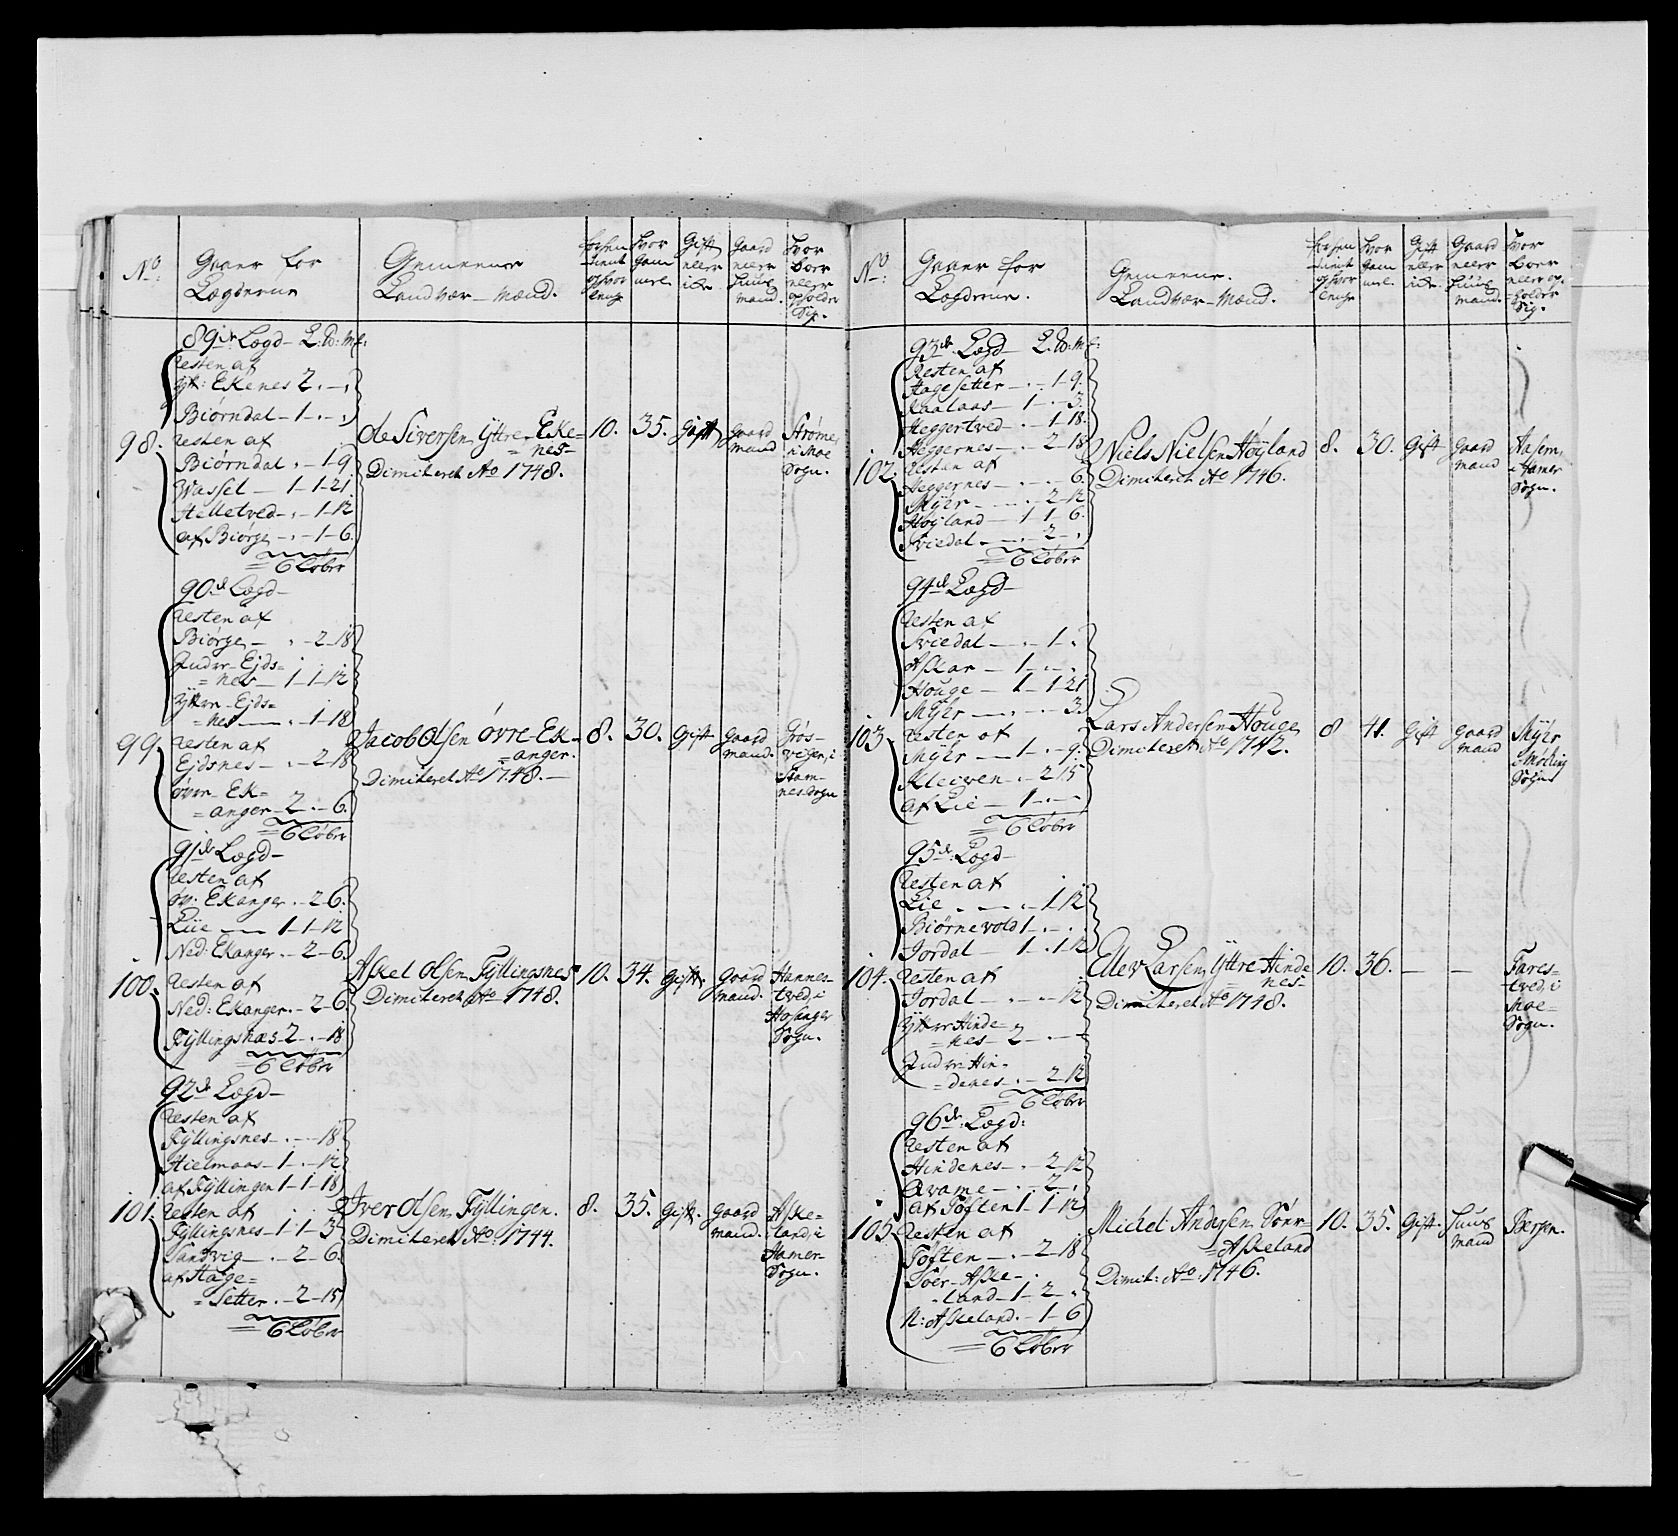 No:
Gaarer for
Lægderne
Gemeene
Landvær-Mænd.
Gift
eller
Gaard
eller
Huus
mand.
Hvor
boer
eller
opholder
Sig.
89de Lægd – L: W: Mf:
Resten af
Yt: Ekenes 2. – ,
Biørndal – 1 – . – ,
98. Resten af
Biørndal . – 1 – 9
Wassel – 1 – 1 – 21.
Helletved – . – 1 – 12
af Biørge – . – 1 – 6.
= 6 Løber
Ole Siversen Yttre Eke=
= nes –
Dimiteret Ao 1748.
10. 35. Gift Gaard
mand
Strøme
i Moe
Sogn.
90de Lægd –
Resten af
Biørge – . – 2 – 18
Indre Ejds=
= nes – 1 – 1 – 12
Yttre Ejds=
= nes – . – 1 – 18
99. Resten af
Ejdsnes – . – 2 – 18
øvre Ek=
= anger – 2 . – 6.
= 6 Løber
Jacob Olsen Øvre Ek=
= anger.
Dimiteret Ao 1748. –
8. 30. Gift Gaard
mand.
i
Stam=
nes Sogn
91de Lægd –
Resten af
øv: Ekanger . – 2 – 6.
Lüe – 1 – 1 – 12
Ned: Ekanger . – 2 – 6
100. Resten af
Ned: Ekanger . – 2 – 6
Fÿllingsnæs – 2 – . – 18
= 6 Løber
Askel Olsen Fÿllingsnes
Dimiteret Ao 1748.
10. 34. Gift. Gaard
mand.
Hannes=
tved, i
Hosanger
Sogn.
92de Lægd –
Resten af
Fÿllingsnes – . – . – 18
Hielmaas – 1 – . – 12
af Fÿllingen 1 – 1 – 18
101. Resten af
Fÿllingsnes – 1 – 1 – 3
Sandvig – . – 2 – 6.
af Hage=
= Setter . – 2 – 15
= 6 Løber
Iver Olsen Fÿllingen.
Dimiteret Ao: 1744.
8. 35. Gift. Gaard
mand.
Aske=
land, i
Hamer=
Sogn.
No:
Gaarer for
Lægderne.
Gemeene.
Landvær-Mænd.
Gift
eller
Gaard
eller
Huus
mand.
Hvor
boer
eller op=
holder
Sig.
93de Lægd – L. W: Mf:
Resten af
Hagesetter – . – 1 – 9.
Kaalaas – 1 – . – 3
Heggertved – . – 1 – 18.
Heggernes – . – 2 – 18
102. Resten af
Heggernes – . – . – 6.
Mÿhr – . – 2 – 12
Høÿland – 1 – 1 – 6.
Sviedal – . – 2 – .
= 6 Løber
Niels Nielsen Høÿland
Dimiteret Ao 1746.
8. 30. Gift Gaard
mand
i Hamer
Sogn.
94de Lægd –
Resten af
Sviedal – . – 1 – .
Askar – 1 – . – .
Houge – 1 – 1 – 21
Mÿhr – . – . – 3.
103. Resten af
Mÿhr – 1 – . – 9.
Kleiven . – 2 – 15
af Lie – 1 – . – .
= 6 Løber
Lars Andersen Houge
Dimiteret Ao 1742.
8 41. Gift Gaard
mand
Mÿhr
i Mæling
Sogn
95de Lægd –
Resten af
Lie – . – 1 – 12
Biørnevold 1 – . – .
Jordal – 1 – 1 – 12
104. Resten af
Jordal – . – . – 12
Yttre Hinde=
= nes – 2 – . – .
Indre Hin=
= denes – . – 2 – 12
= 6 Løber
Elev Larsen Yttre Hinde
nes –
Dimiteret Ao 1748.
10. 36. – –
Fares=
tved, i
Moe=
Sogn.
96de Lægd:
Resten af
Hindenes – . – 2 – 12
Qvame – . – 2 – .
af Toften 1 – 1 – 12
105. Resten af
Toften – . – 2 – 18
Søer Aske=
land – 1 – 2 – .
N: Askeland . – 1 – 6
= 6 Løber
Michel Andersen Sönr=
= Askeland
Dimit: Ao: 1746.
10. 35. Gift. Huus
mand
Bergen.